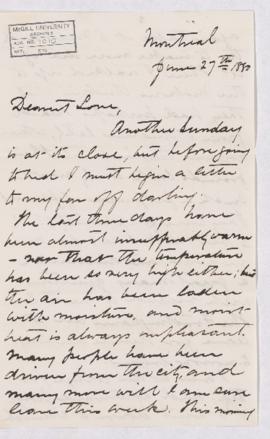 McGILL UNIVERSITY
ARCHIVES
ACC. NO. 1010
REF.
Montreal
June 27th 1880
Dearest Love,
Another Sunday
is at its close, but before going
to bed I must begin a letter
to my far off darling.
The last three days have
been almost insufferably warm
- not that the temperature
has been so very high either; but
the air has been laden
with moisture, and moist-
heat is always unpleasant.
Many people have been
driven from the city and
many more will I am sure
leave this week. This morning